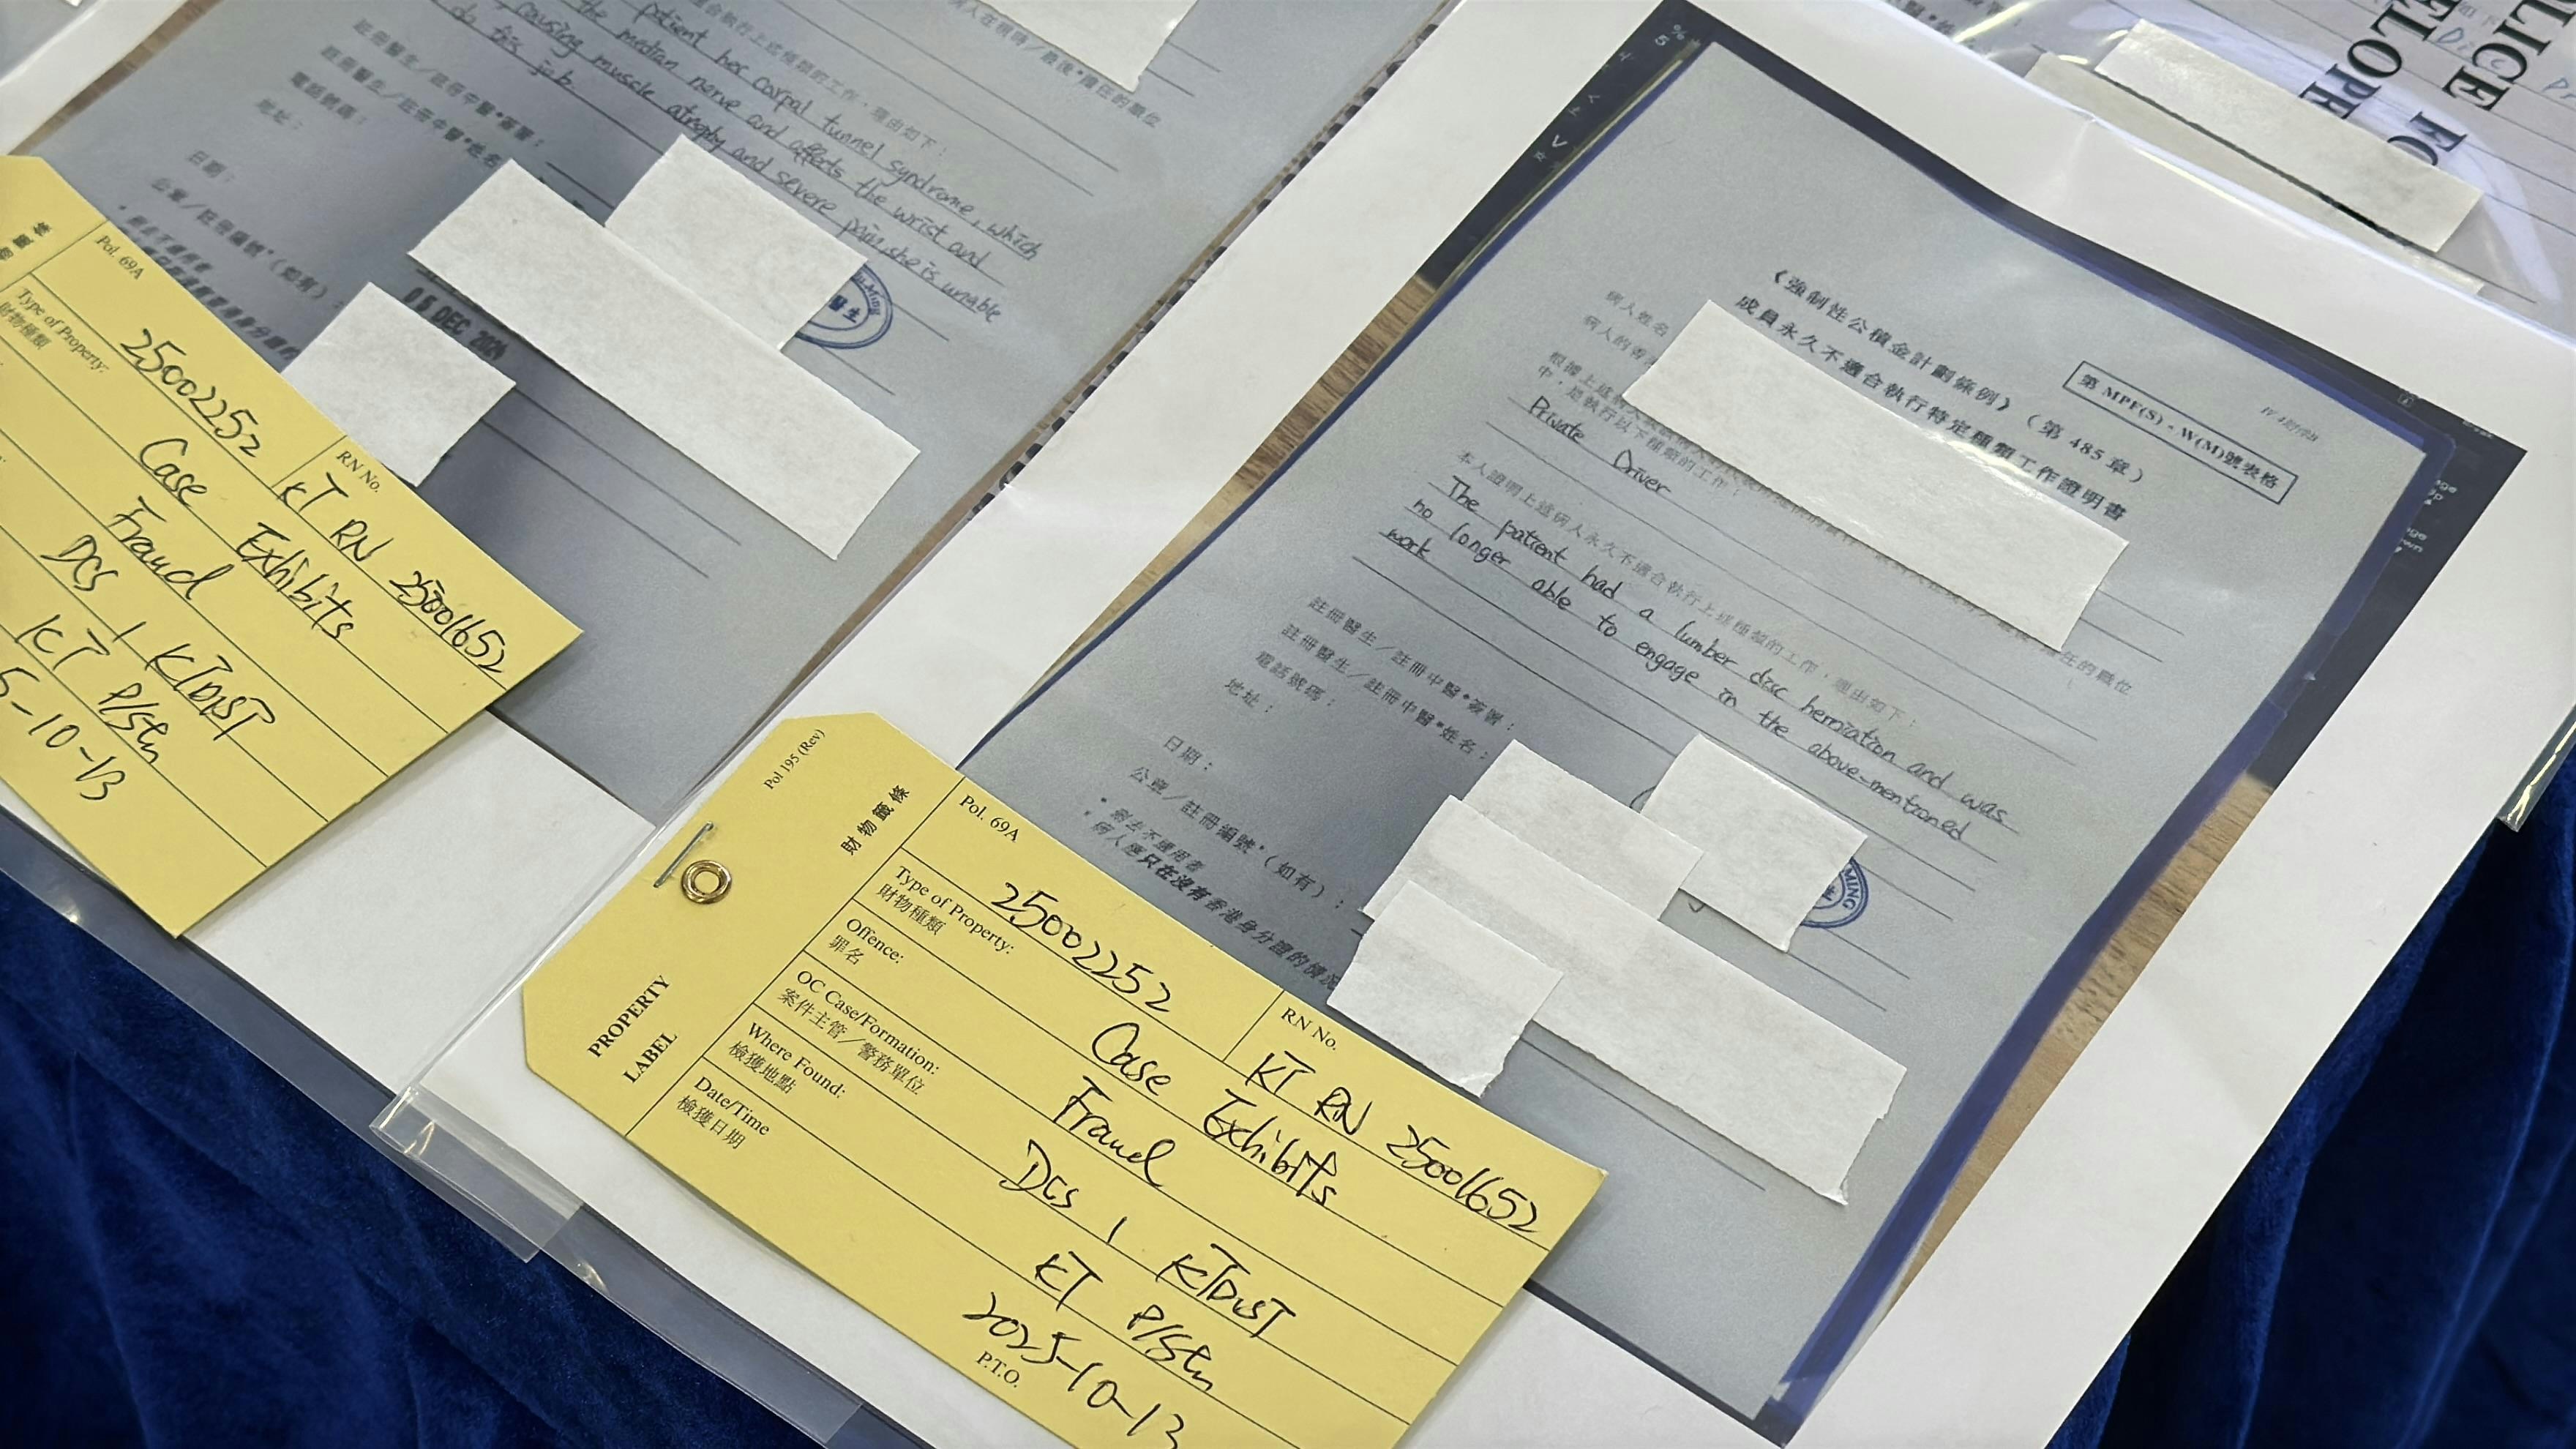 patient her carpal tunnel syndrome, which
causing the median nerve and affects the wrist and
muscle atrophy and severe pain, she is unable
do this job.
註冊醫生／註冊中醫*簽署：
註冊醫生／註冊中醫*姓名
電話號碼：
地址：
日期：
公章／註冊編號*（如有）：
DEC
Pol. 69A
Type of Property:
25002252
RN No.
KT RN 25001652
Case Exhibits
Fraud
DCS 1 KTDIST
KT P/Stn
5-10-13
第 MPF(S) - W(M)號表格
《強制性公積金計劃條例》（第 485 章）
成員永久不適合執行特定種類工作證明書
病人姓名
病人的香
Private Driver
本人證明上述病人永久不適合執行上述種類的工作，理由如下：
The patient had a lumber disc herniation and was
no longer able to engage in the above-mentioned
work
註冊醫生／註冊中醫*簽署：
註冊醫生／註冊中醫*姓名：
電話號碼：
地址：
日期：
公章／註冊編號*（如有）：
* 刪去不適用者
* 病人應只在沒有香港身分證的情況
MING
Pol 195 (Rev)
財物籤條
PROPERTY
LABEL
Pol. 69A
25002252
RN No.
KT RN 25001652
Type of Property:
財物種類
Case Exhibits
Offence:
罪名
Fraud
OC Case/Formation:
案件主管／警務單位
DCS 1 KTDIST
Where Found:
檢獲地點
KT P/Stn
Date/Time
檢獲日期
2025-10-13
P.T.O.